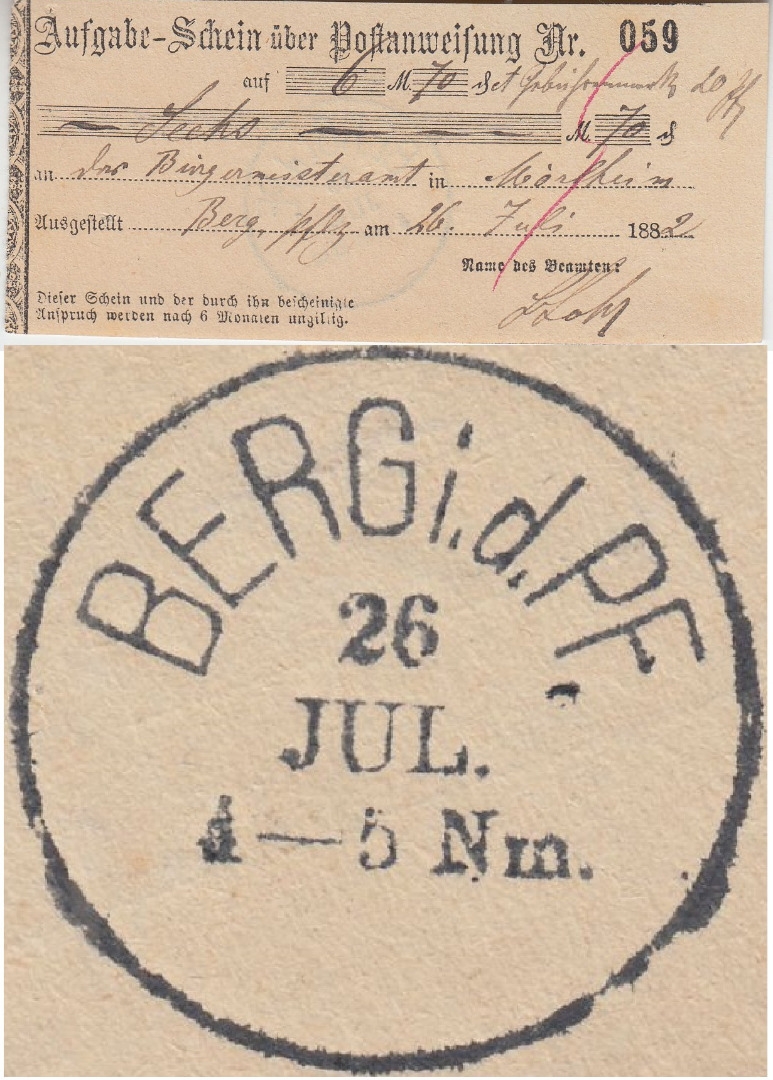 Aufgabe-Schein über Postanweisung Nr. 059
auf 6 M. 70 ₰ 20 Pf
Sechs M. 70 ₰
an das Bürgermeisteramt in Mörlheim
Ausgestellt Berg, Pflz am 26. Juli 1882
Name des Beamten:
Dieser Schein und der durch ihn bescheinigte
Anspruch werden nach 6 Monaten ungiltig.
BERG i. d. PF.
26
JUL.
4—5 Nm.